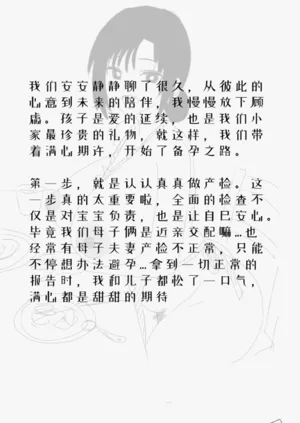 我们安安静静聊了很久，从彼此的
心意到未来的陪伴，我慢慢放下顾
虑。孩子是爱的延续，也是我们小
家最珍贵的礼物，就这样，我们带
着满心期许，开始了备孕之路。
第一步，就是认认真真做产检。这
一步真的太重要啦，全面的检查不
仅是对宝宝负责，也是让自己安心。
毕竟我们母子俩是近亲交配嘛…也
经常有母子夫妻产检不正常，只能
不停想办法避孕…拿到一切正常的
报告时，我和儿子都松了一口气，
满心都是甜甜的期待